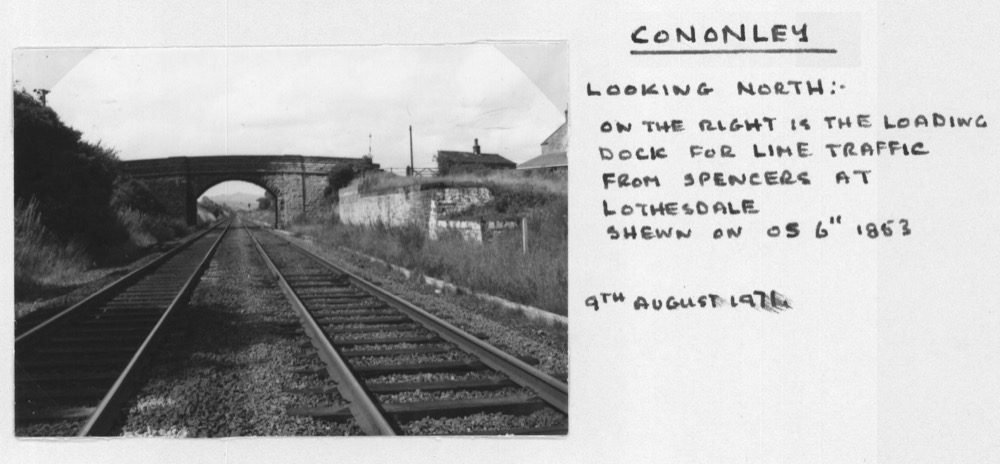 CONONLEY
LOOKING NORTH:-
ON THE RIGHT IS THE LOADING
DOCK FOR LIME TRAFFIC
FROM SPENCERS AT
LOTHESDALE
SHEWN ON OS 6" 1853
9TH AUGUST